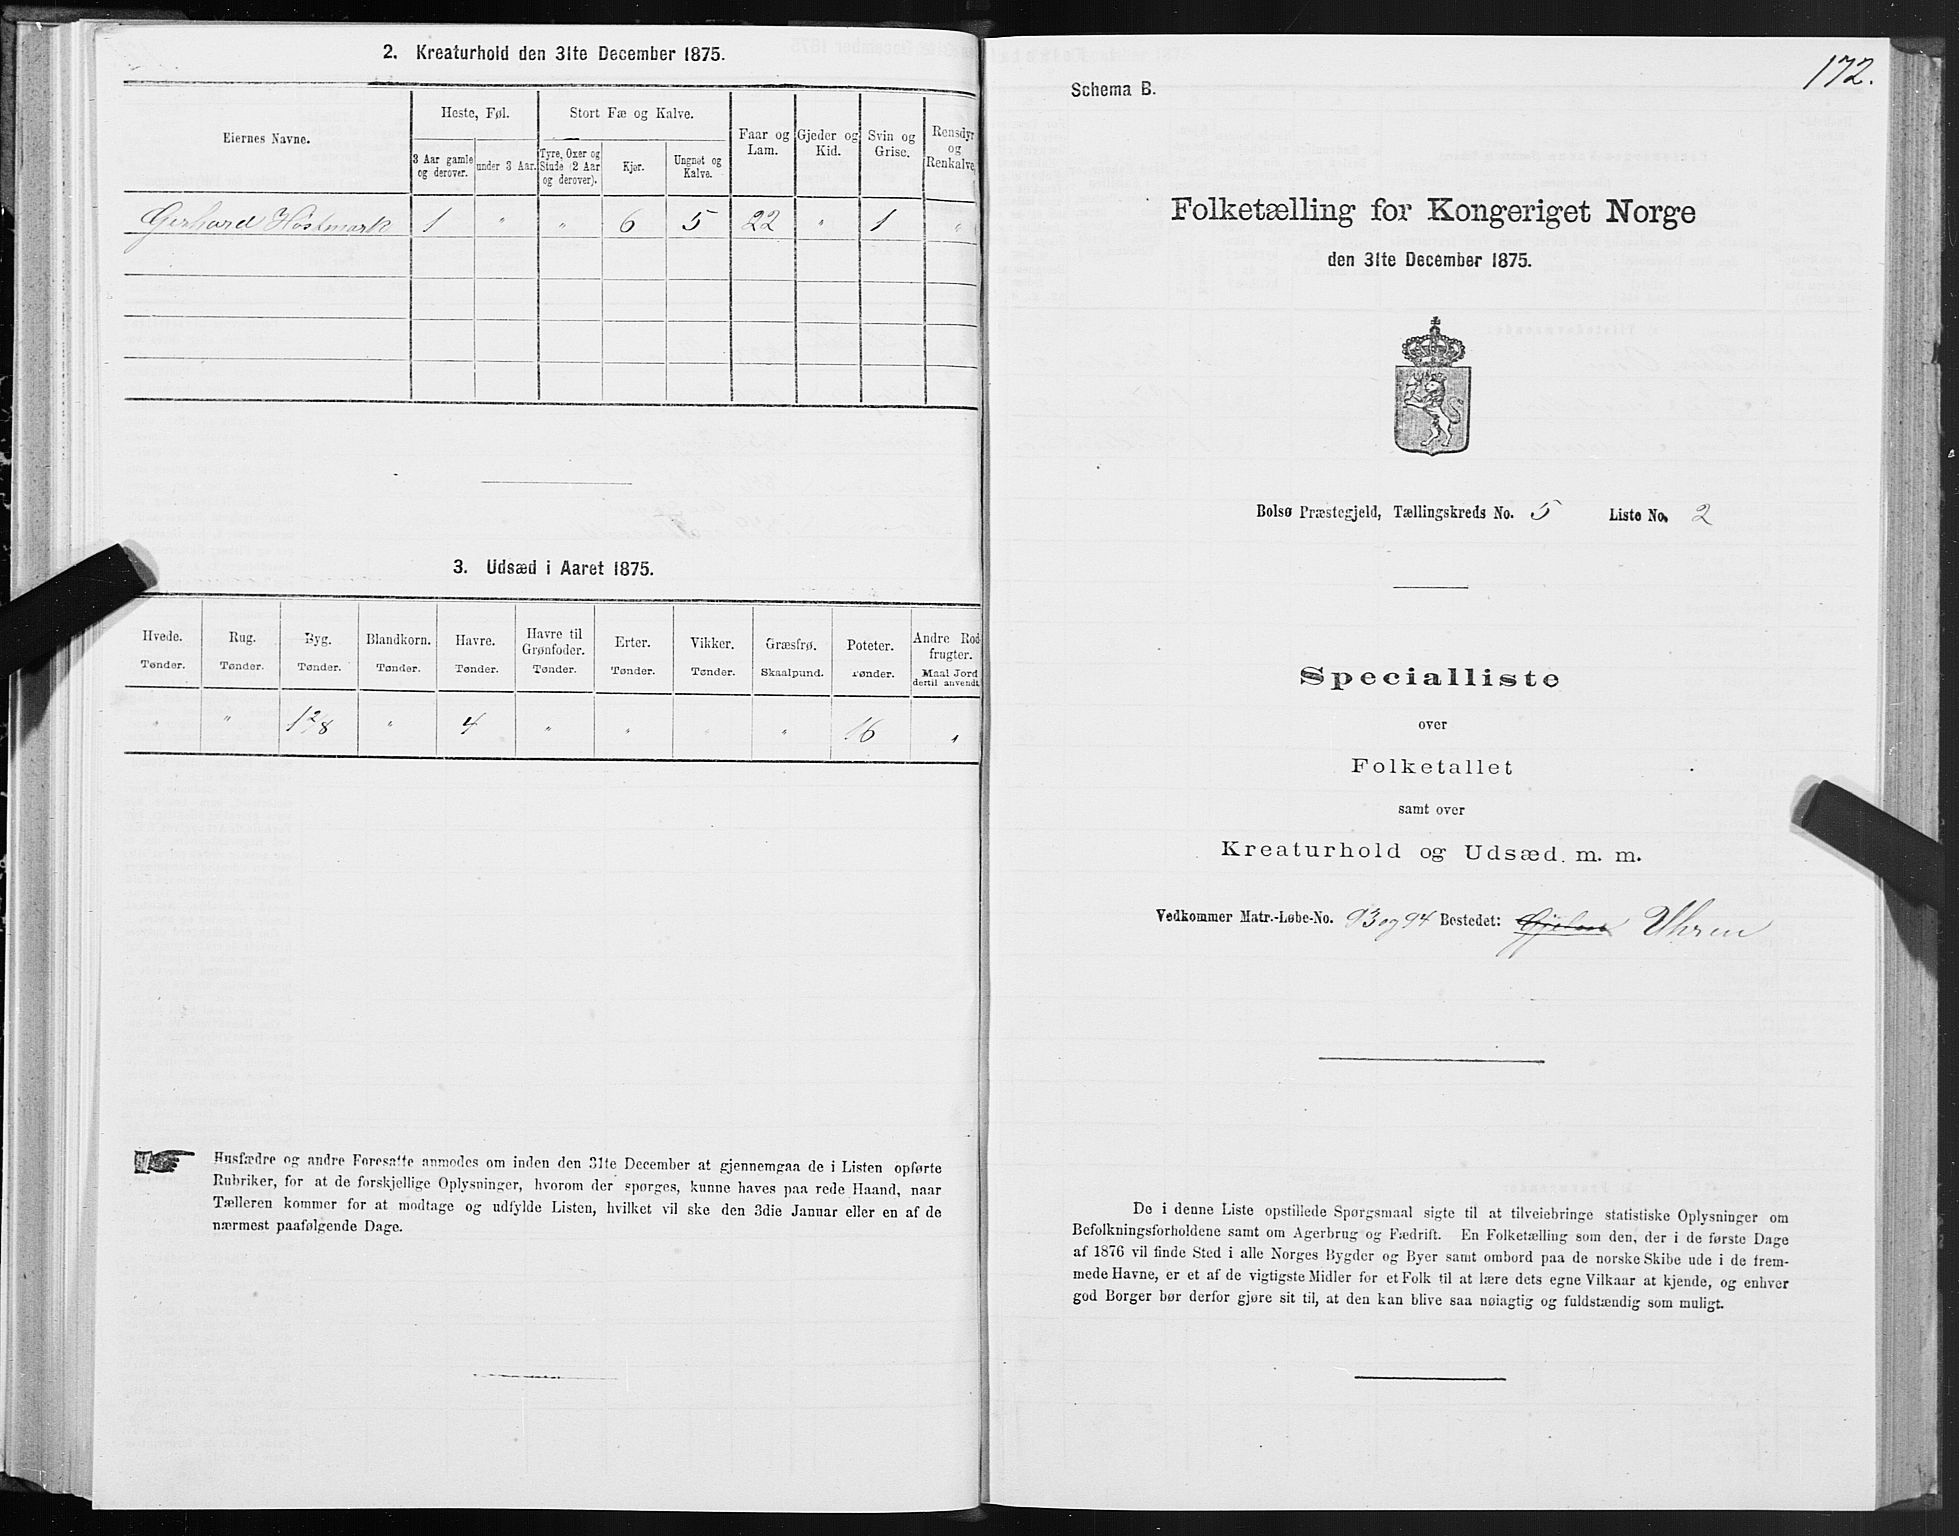 2. Kreaturhold den 31te December 1875.
Eiernes Navne.
Heste, Føl.
Stort Fæ og Kalve.
Faar og Lam.
Gjeder og Kid.
Svin og Grise.
Rensdyr og Renkalve.
3 Aar gamle og derover.
under 3 Aar.
Tyre, Oxer og Stude (2 Aar og derover).
Kjør.
Ungnøt og Kalve.
Gerhard Höstmark 1 " " 6 5 22 " 1 "
3. Udsæd i Aaret 1875.
Hvede. Rug. Byg. Blandkorn. Havre. Havre til Grønfoder. Erter. Vikker. Græsfrø. Poteter. Andre Rodfrugter.
Tønder. Tønder. Tønder. Tønder. Tønder. Tønder. Tønder. Tønder. Skaalpund. Tønder. Maal Jord dertil anvendt.
" " 1 2/8 " 4 " " " " 16 "
Husfædre og andre Foresatte anmodes om inden den 31te December at gjennemgaa de i Listen opførte
Rubriker, for at de forskjellige Oplysninger, hvorom der spørges, kunne haves paa rede Haand, naar
Tælleren kommer for at modtage og udfylde Listen, hvilket vil ske den 3die Januar eller en af de
nærmest paafølgende Dage.
172.
Schema B.
Folketælling for Kongeriget Norge
den 31te December 1875.
Bolsø Præstegjeld, Tællingskreds No. 5 Liste No. 2
Specialliste
over
Folketallet
samt over
Kreaturhold og Udsæd. m. m.
Vedkommer Matr.-Løbe-No. 93 og 94 Bostedet: Uhren
De i denne Liste opstillede Spørgsmaal sigte til at tilveiebringe statistiske Oplysninger om
Befolkningsforholdene samt om Agerbrug og Fædrift. En Folketælling som den, der i de første Dage
af 1876 vil finde Sted i alle Norges Bygder og Byer samt ombord paa de norske Skibe ude i de frem-
mede Havne, er et af de vigtigste Midler for et Folk til at lære dets egne Vilkaar at kjende, og enhver
god Borger bør derfor gjøre sit til, at den kan blive saa nøiagtig og fuldstændig som muligt.